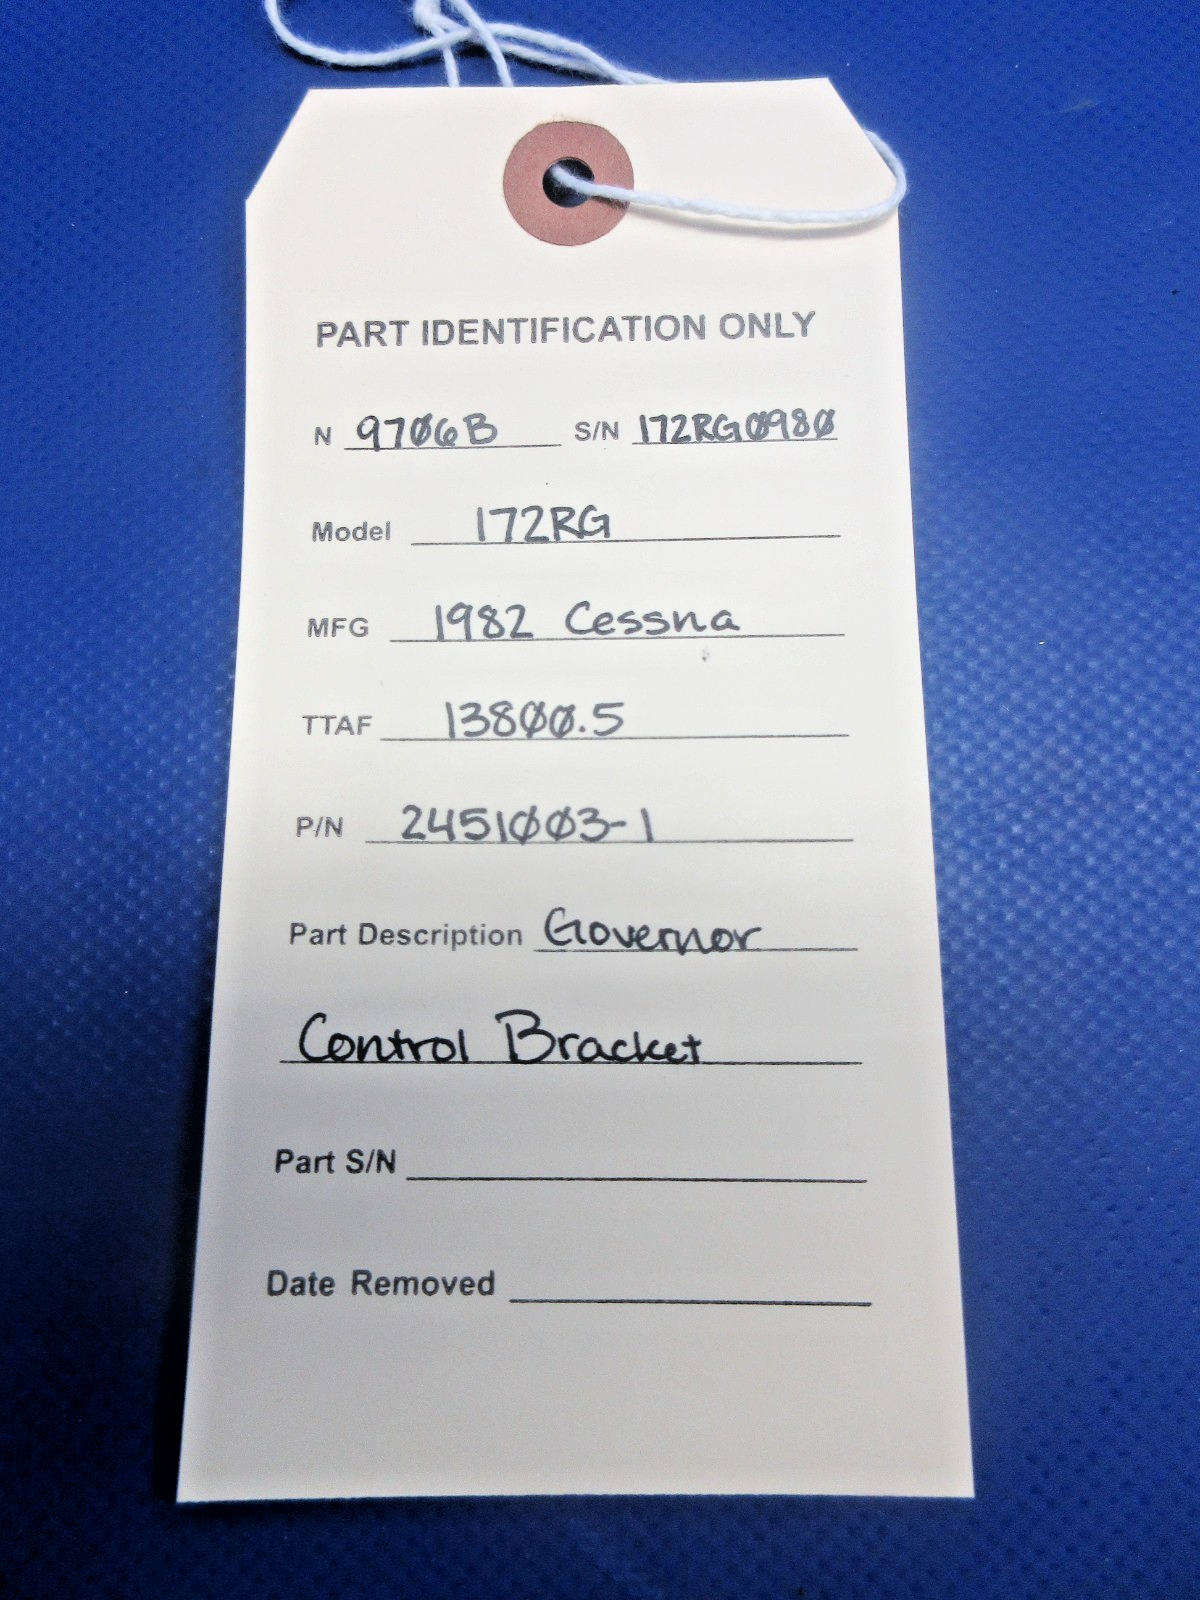 PART IDENTIFICATION ONLY
N 9706B S/N 172RG0980
Model 172RG
MFG 1982 Cessna
TTAF 13800.5
P/N 2451003-1
Part Description Governor
Control Bracket
Part S/N
Date Removed